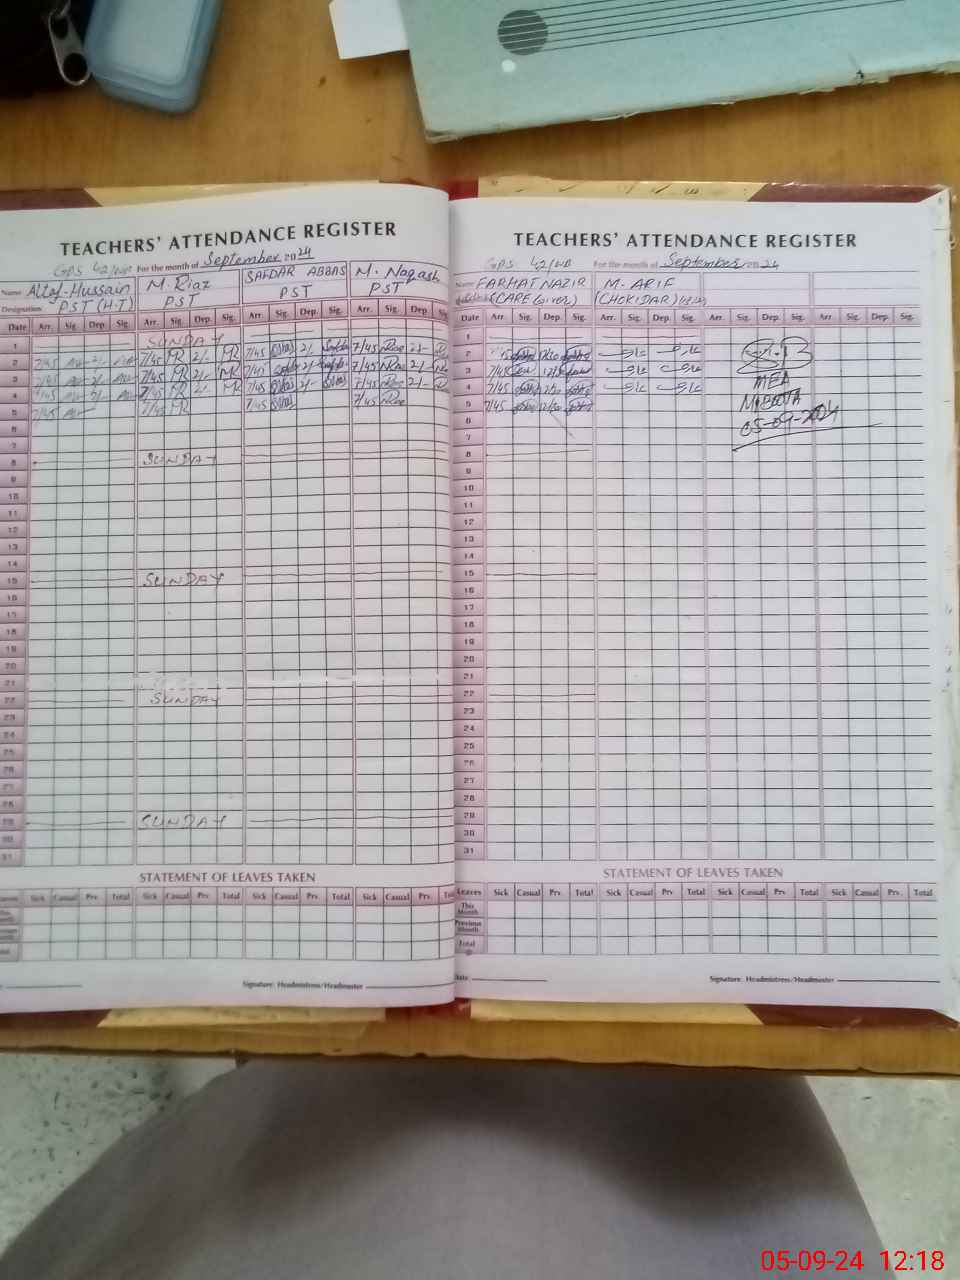 TEACHERS' ATTENDANCE REGISTER
GPS 42/WB For the month of September 2024
Name Altaf Hussain M. Riaz SAFDAR ABBAS M. Naqash
Designation PST (H.T) PST PST PST
Date Arr. Sig. Dep. Sig. Arr. Sig. Dep. Sig. Arr. Sig. Dep. Sig. Arr. Sig. Dep. Sig.
1 SUNDAY
2 7/45 2/- 7/45 MR 2/- MR 7/45 2/- 7/45 2/-
3 7/45 2/- 7/45 MR 2/- MR 7/45 2/- 7/45 2/-
4 7/45 2/- 7/45 MR 2/- MR 7/45 2/- 7/45 2/-
5 7/45 7/45 MR 7/45 7/45
6
7
8 SUNDAY
9
10
11
12
13
14
15 SUNDAY
16
17
18
19
20
21
22 SUNDAY
23
24
25
26
27
28
29 SUNDAY
30
31
STATEMENT OF LEAVES TAKEN
Leaves Sick Casual Prv. Total Sick Casual Prv. Total Sick Casual Prv. Total Sick Casual Prv. Total
Signature: Headmistress/Headmaster
TEACHERS' ATTENDANCE REGISTER
GPS 42/WB For the month of September 2024
Name FARHAT NAZIR M. ARIF
(CARE Giver) (CHOKIDAR)
Date Arr. Sig. Dep. Sig. Arr. Sig. Dep. Sig. Arr. Sig. Dep. Sig. Arr. Sig. Dep. Sig.
1
2 7/45 12/20
3 7/45 12/20
4 7/45 12/20 MEA
5 7/45 12/20
6 05-09-2024
7
8
9
10
11
12
13
14
15
16
17
18
19
20
21
22
23
24
25
26
27
28
29
30
31
STATEMENT OF LEAVES TAKEN
Leaves Sick Casual Prv. Total Sick Casual Prv. Total Sick Casual Prv. Total Sick Casual Prv. Total
This Month
Previous Month
Total
Date Signature: Headmistress/Headmaster
05-09-24 12:18